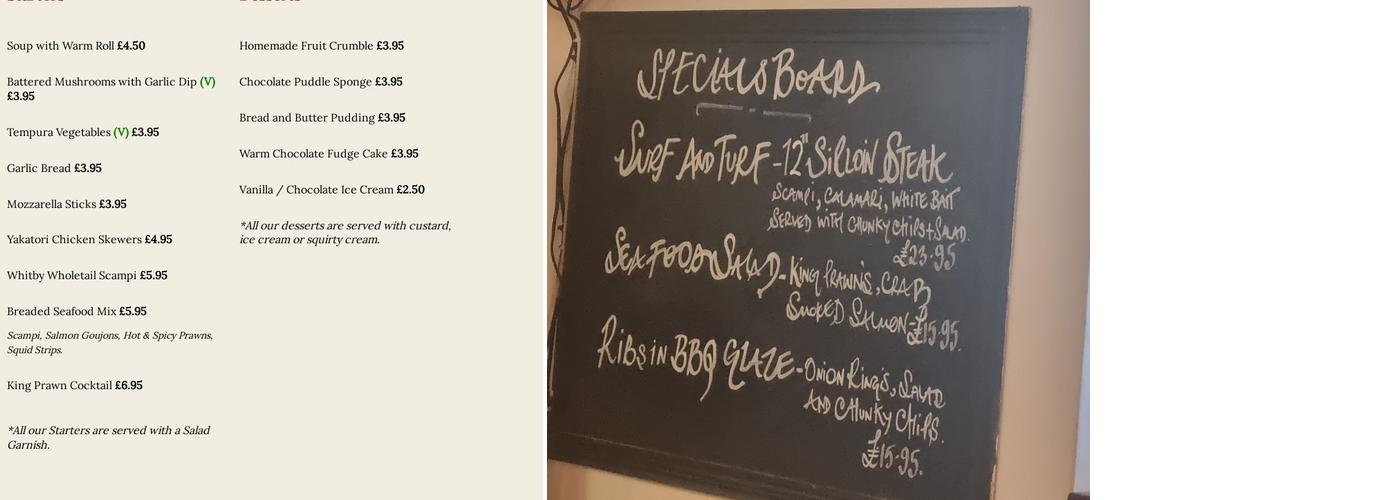 Soup with Warm Roll £4.50
Battered Mushrooms with Garlic Dip (V)
£3.95
Tempura Vegetables (V) £3.95
Garlic Bread £3.95
Mozzarella Sticks £3.95
Yakatori Chicken Skewers £4.95
Whitby Wholetail Scampi £5.95
Breaded Seafood Mix £5.95
Scampi, Salmon Goujons, Hot & Spicy Prawns,
Squid Strips.
King Prawn Cocktail £6.95
*All our Starters are served with a Salad
Garnish.
Homemade Fruit Crumble £3.95
Chocolate Puddle Sponge £3.95
Bread and Butter Pudding £3.95
Warm Chocolate Fudge Cake £3.95
Vanilla / Chocolate Ice Cream £2.50
*All our desserts are served with custard,
ice cream or squirty cream.
SPECIALS BOARD
SURF AND TURF - 12" SIRLOIN STEAK
SCAMPI, CALAMARI, WHITE BAIT
SERVED WITH CHUNKY CHIPS + SALAD.
£23.95
SEAFOOD SALAD - KING PRAWNS, CRAB
SMOKED SALMON - £15.95.
RIBS IN BBQ GLAZE - ONION RINGS, SALAD
AND CHUNKY CHIPS.
£15.95.